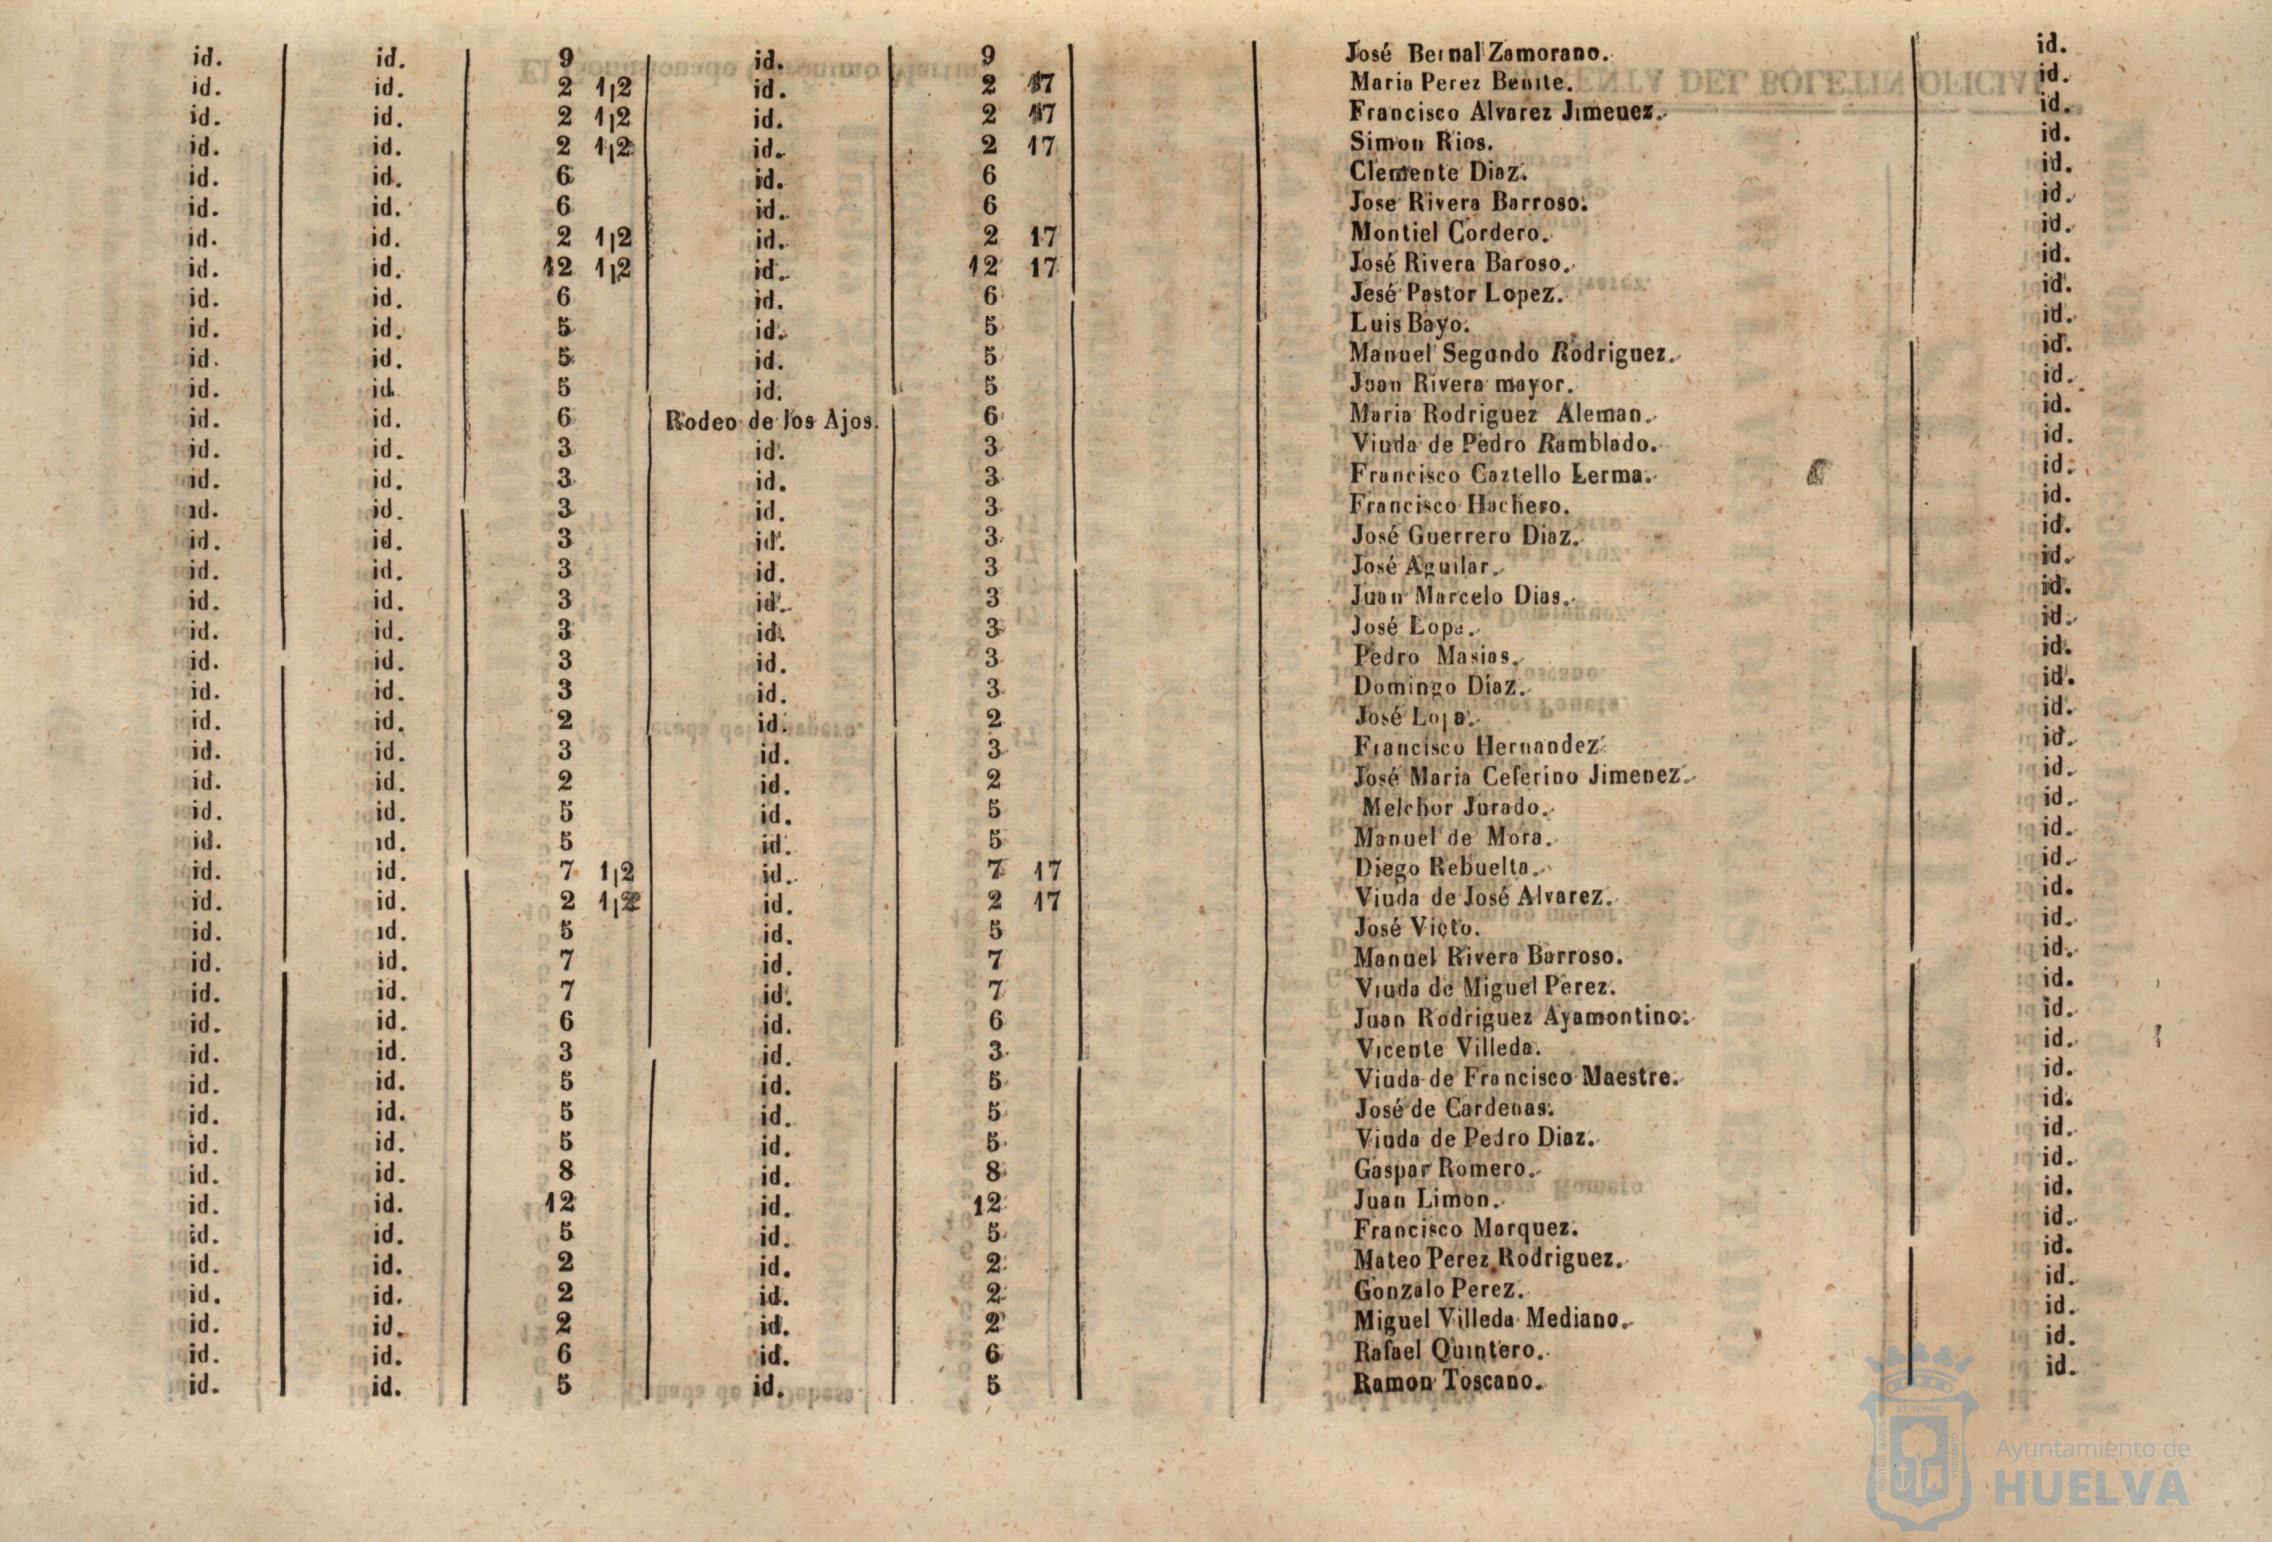 id. id. 9 id. 9 José Bernal Zamorano. id.
id. id. 2 1|2 id. 2 17 Maria Perez Benite. id.
id. id. 2 1|2 id. 2 17 Francisco Alvarez Jimenez. id.
id. id. 2 1|2 id. 2 17 Simon Rios. id.
id. id. 6 id. 6 Clemente Diaz. id.
id. id. 6 id. 6 Jose Rivera Barroso. id.
id. id. 2 1|2 id. 2 17 Montiel Cordero. id.
id. id. 12 1|2 id. 12 17 José Rivera Baroso. id.
id. id. 6 id. 6 Jesé Pastor Lopez. id.
id. id. 5 id. 5 Luis Bayo. id.
id. id. 5 id. 5 Manuel Segundo Rodriguez. id.
id. id 5 id. 5 Juan Rivera mayor. id.
id. id. 6 Rodeo de los Ajos. 6 Maria Rodriguez Aleman. id.
id. id. 3 id. 3 Viuda de Pedro Ramblado. id.
id. id. 3 id. 3 Francisco Caztello Lerma. id.
id. id. 3 id. 3 Francisco Hachero. id.
id. id. 3 id. 3 José Guerrero Diaz. id.
id. id. 3 id. 3 José Aguilar. id.
id. id. 3 id. 3 Juan Marcelo Dias. id.
id. id. 3 id. 3 José Lope. id.
id. id. 3 id. 3 Pedro Masias. id.
id. id. 3 id. 3 Domingo Díaz. id.
id. id. 2 id. 2 José id.
id. id. 3 id. 3 Francisco Hernandez id.
id. id. 2 id. 2 José Maria Ceferino Jimenez. id.
id. id. 5 id. 5 Melchor Jurado. id.
id. id. 5 id. 5 Manuel de Mora. id.
id. id. 7 1|2 id. 7 17 Diego Rebuelta. id.
id. id. 2 1|2 id. 2 17 Viuda de José Alvarez. id.
id. id. 5 id. 5 José Victo. id.
id. id. 7 id. 7 Manuel Rivera Barroso. id.
id. id. 7 id. 7 Viuda de Miguel Perez. id.
id. id. 6 id. 6 Juan Rodriguez Ayamontino. id.
id. id. 3 id. 3 Vicente Villeda. id.
id. id. 5 id. 5 Viuda de Francisco Maestre. id.
id. id. 5 id. 5 José de Cardenas. id.
id. id. 5 id. 5 Viuda de Pedro Diaz. id.
id. id. 8 id. 8 Gaspar Romero. id.
id. id. 12 id. 12 Juan Limon. id.
id. id. 5 id. 5 Francisco Marquez. id.
id. id. 2 id. 2 Mateo Perez Rodriguez. id.
id. id. 2 id. 2 Gonzalo Perez. id.
id. id. 2 id. 2 Miguel Villeda Mediano. id.
id. id. 6 id. 6 Rafael Quintero. id.
id. id. 5 id. 5 Ramon Toscano. id.
Ayuntamiento de
HUELVA